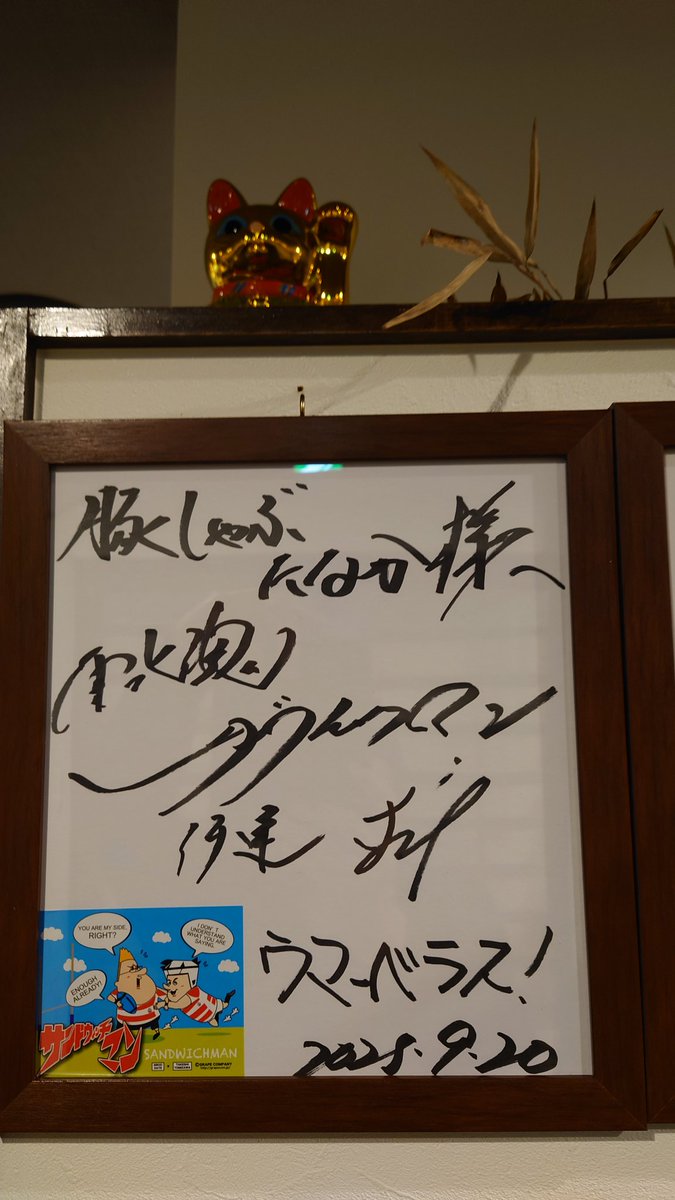 豚しゃぶ
たなか様へ
サンドウィッチマン
伊達
YOU ARE MY SIDE,
RIGHT?
I DON'T
UNDERSTAND
WHAT YOU ARE
SAYING.
ENOUGH
ALREADY!
サンドウィッチマン
SANDWICHMAN
©GRAPE COMPANY
ウマーベラス!
2025.9.20